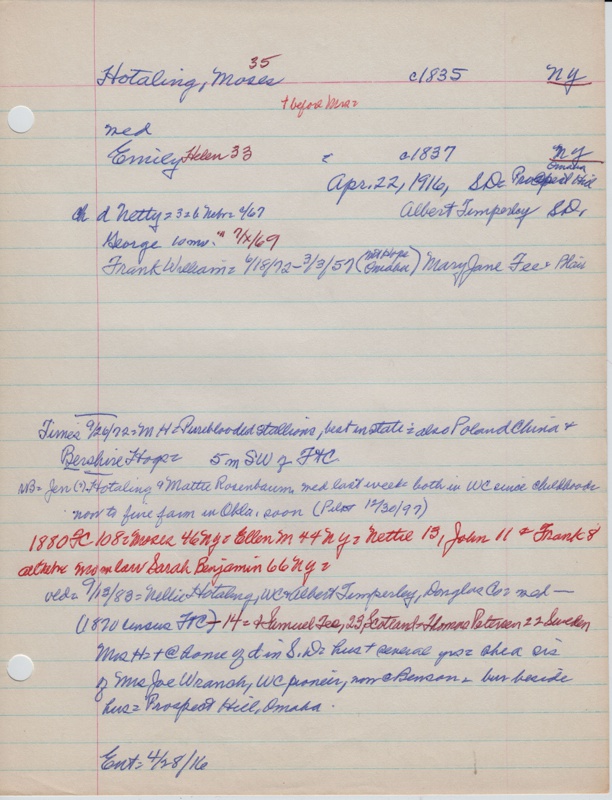 35
Hotaling, Moses c1835 NY
+ before Mrs=
med
Emily Helen 33 c1837 NY
Omaha
Apr. 22, 1916, S.D.= Prospect Hill
ch d Netty = 3 2/6 Nebr= 2/67 Albert Timperley S.D.
George 10 mo. " 7/X/69
Frank William = 4/18/72 - 3/3/57 (Omaha) Mary Jane Fee + Plain
Times 9/26/72 = M H = Pureblooded stallions, best in state = also Poland China +
Bershire Hogs = 5 m SW of FtC
NB= Jen (?) Hotaling & Mattie Rosenbaum med last week both in WC since childhood
now to fine farm in Okla. soon (Pilot 12/30/97)
1880 FC 108 = Moses 46 NY = Ellen M 44 NY = Nettie 13, John 11 & Frank 8
all Nebr mom law Sarah Benjamin 66 NY =
ved = 9/13/83 = Nellie Hotaling, WC & Albert Timperley, Douglas Co = med —
(1870 census FtC) - 14 = + Samuel Fee, 23, Scotland & Thomas Petersen 22 Sweden
Mrs H = + @ home of d in S.D = hus + several yrs = she a sis
of Mrs Joe Wranch, WC pioneer, now @ Benson = bur beside
hus = Prospect Hill, Omaha.
Ent = 4/28/16